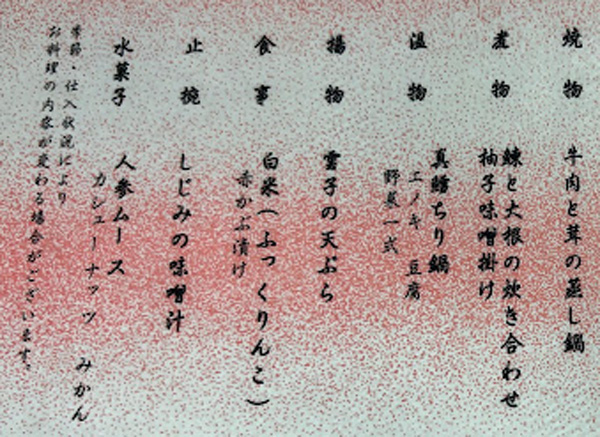 焼物 牛肉と茸の蒸し鍋
煮物 鰊と大根の炊き合わせ
柚子味噌掛け
温物 真鱈ちり鍋
エノキ 豆腐
野菜一式
揚物 雲子の天ぷら
食事 白米(ふっくりんこ)
赤かぶ漬け
止椀 しじみの味噌汁
水菓子 人参ムース
カシューナッツ みかん
季節・仕入状況により
お料理の内容が変わる場合がございます。